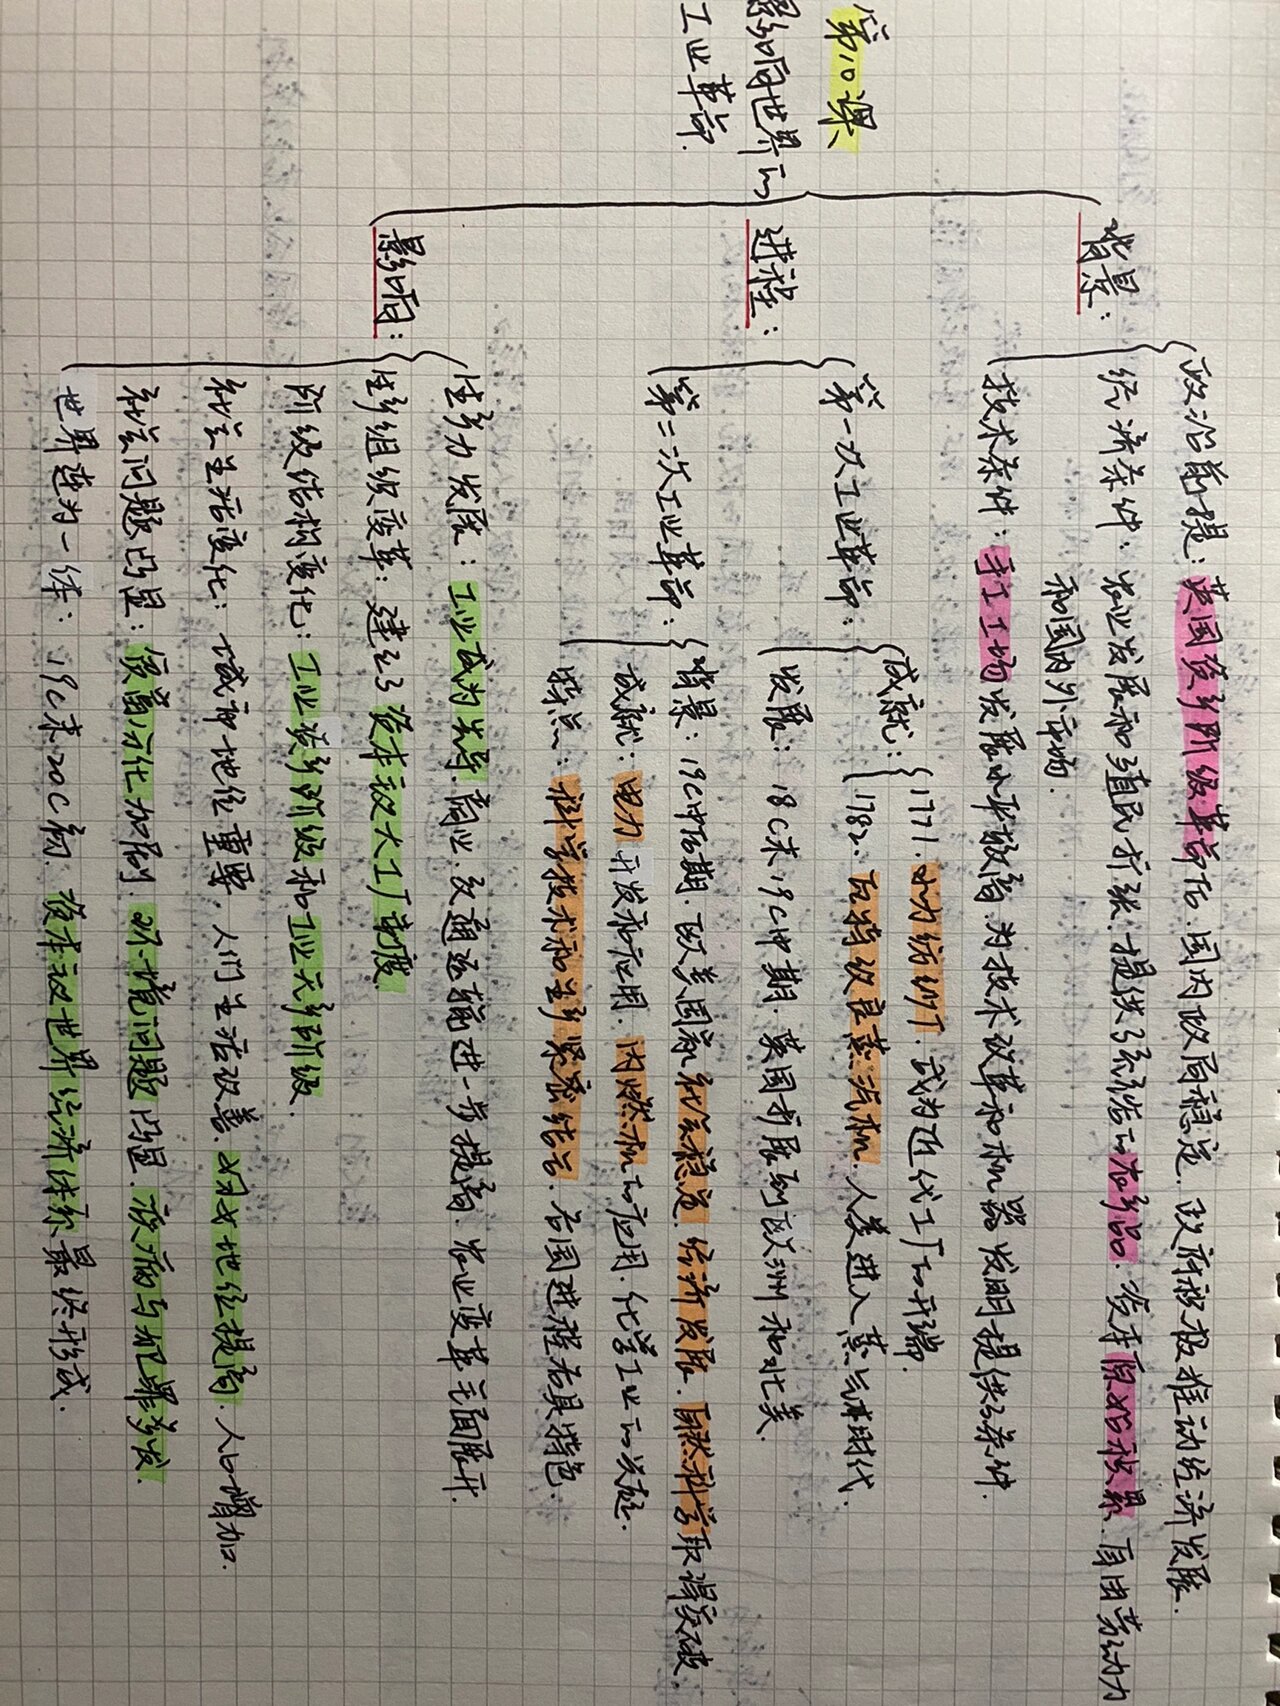 第10课、
影响世界的
工业革命.
背景：
政治前提：英国资产阶级革命后.国内政局稳定.政府积极推动经济发展.
经济条件：农业发展和殖民扩张.提供了充裕的农产品.资本原始积累.自由劳动力
和国内外市场.
技术条件：手工工场发展水平较高.为技术改革和机器发明提供了条件.
进程：
第一次工业革命：
成就：
1771.水力纺纱厂.成为近代工厂的开端.
1782.瓦特改良蒸汽机.人类进入蒸汽时代.
发展：18C末19C中期.英国扩展到欧洲和北美.
第二次工业革命：
背景：19C中后期.欧美国家社会稳定.经济发展.自然科学取得突破.
成就：电力开发和应用.内燃机的应用.化学工业的兴起.
特点：科学技术和生产紧密结合.各国进程各具特色.
影响：
生产力发展：工业成为主导.商业.交通运输进一步提高.农业变革全面展开.
生产组织变革：建立了资本主义大工厂制度
阶级结构变化：工业资产阶级和工业无产阶级.
社会生活变化：城市地位重要.人们生活改善.妇女地位提高.人口增加.
社会问题凸显：贫富分化加剧.环境问题凸显.疾病与犯罪多发.
世界连为一体：19C末20C初.资本主义世界经济体系最终形成.